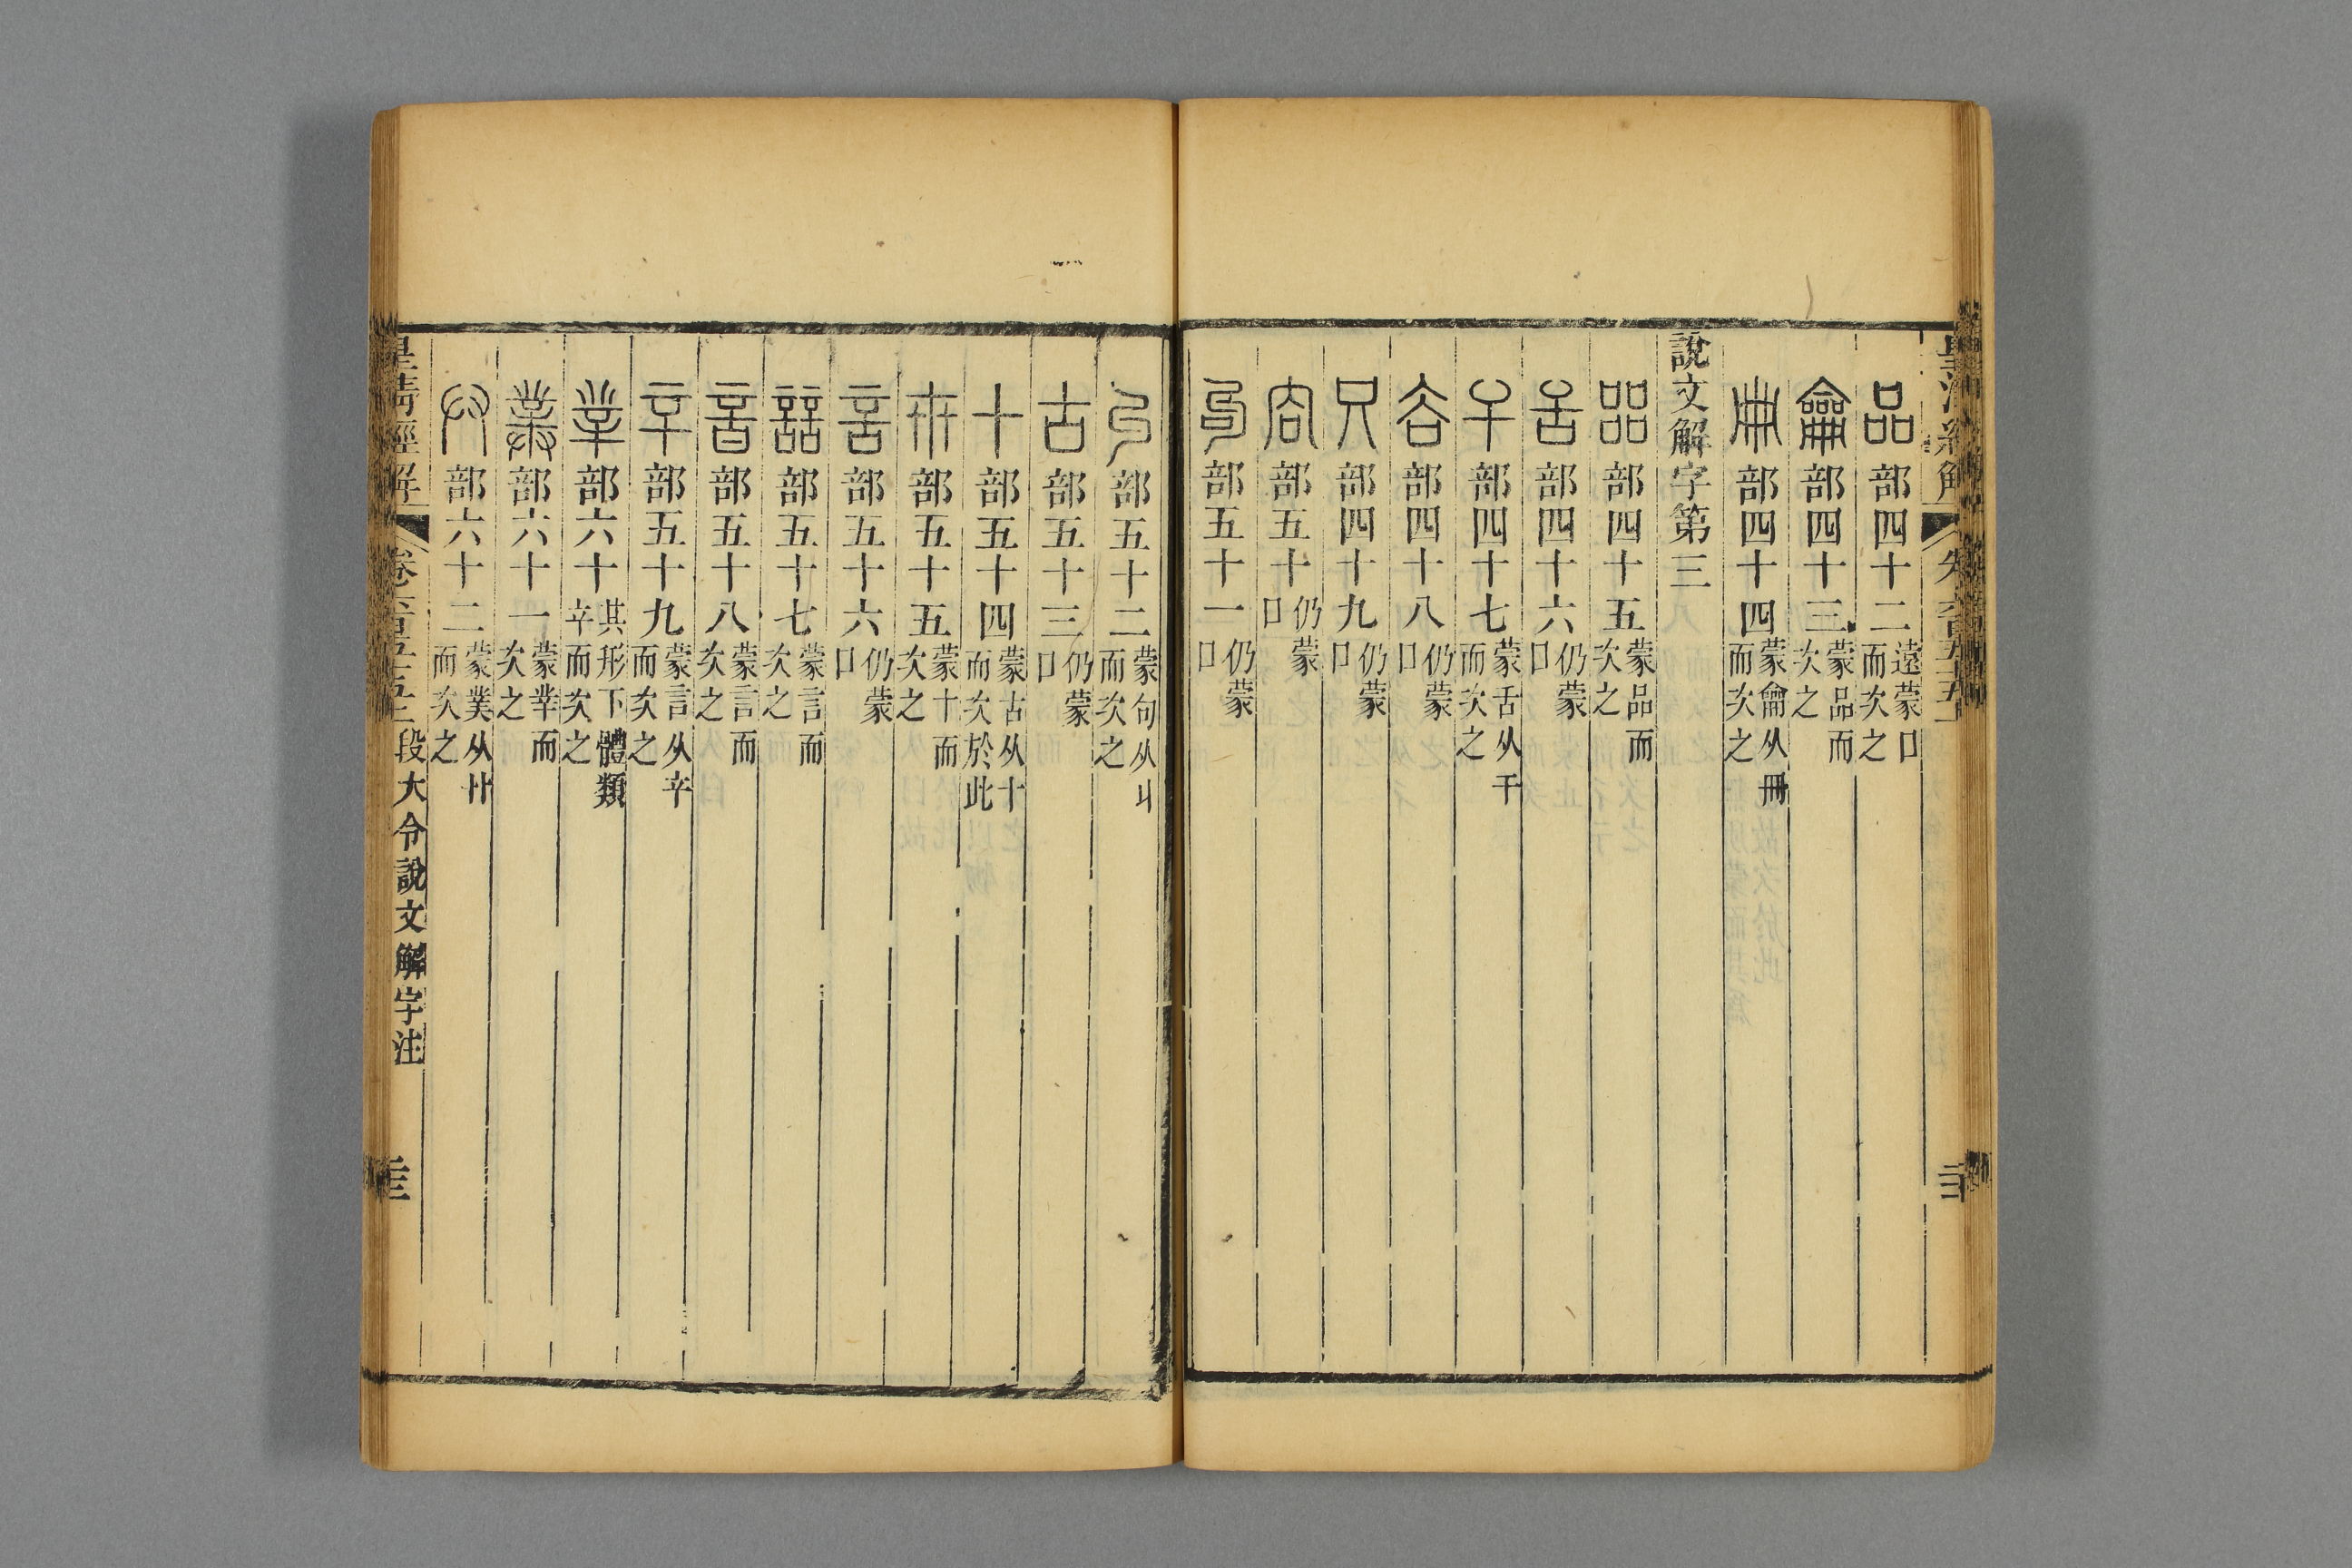 品部四十二遠蒙口而次之
龠部四十三蒙品而次之
冊部四十四蒙龠从冊而次之
說文解字第三
㗊部四十五蒙品而次之
舌部四十六仍蒙口
干部四十七蒙舌从干而次之
𧮫部四十八仍蒙口
只部四十九仍蒙口
㕯部五十仍蒙口
句部五十一仍蒙口
丩部五十二蒙句从丩而次之
古部五十三仍蒙口
十部五十四蒙古从十而次於此
卅部五十五蒙十而次之
言部五十六仍蒙口
誩部五十七蒙言而次之
音部五十八蒙言而次之
䇂部五十九蒙言从䇂而次之
丵部六十其形下體類䇂而次之
菐部六十一蒙丵而次之
𠬞部六十二蒙菐从𠬞而次之
皇清經解 卷六百五十五 段大令說文解字注